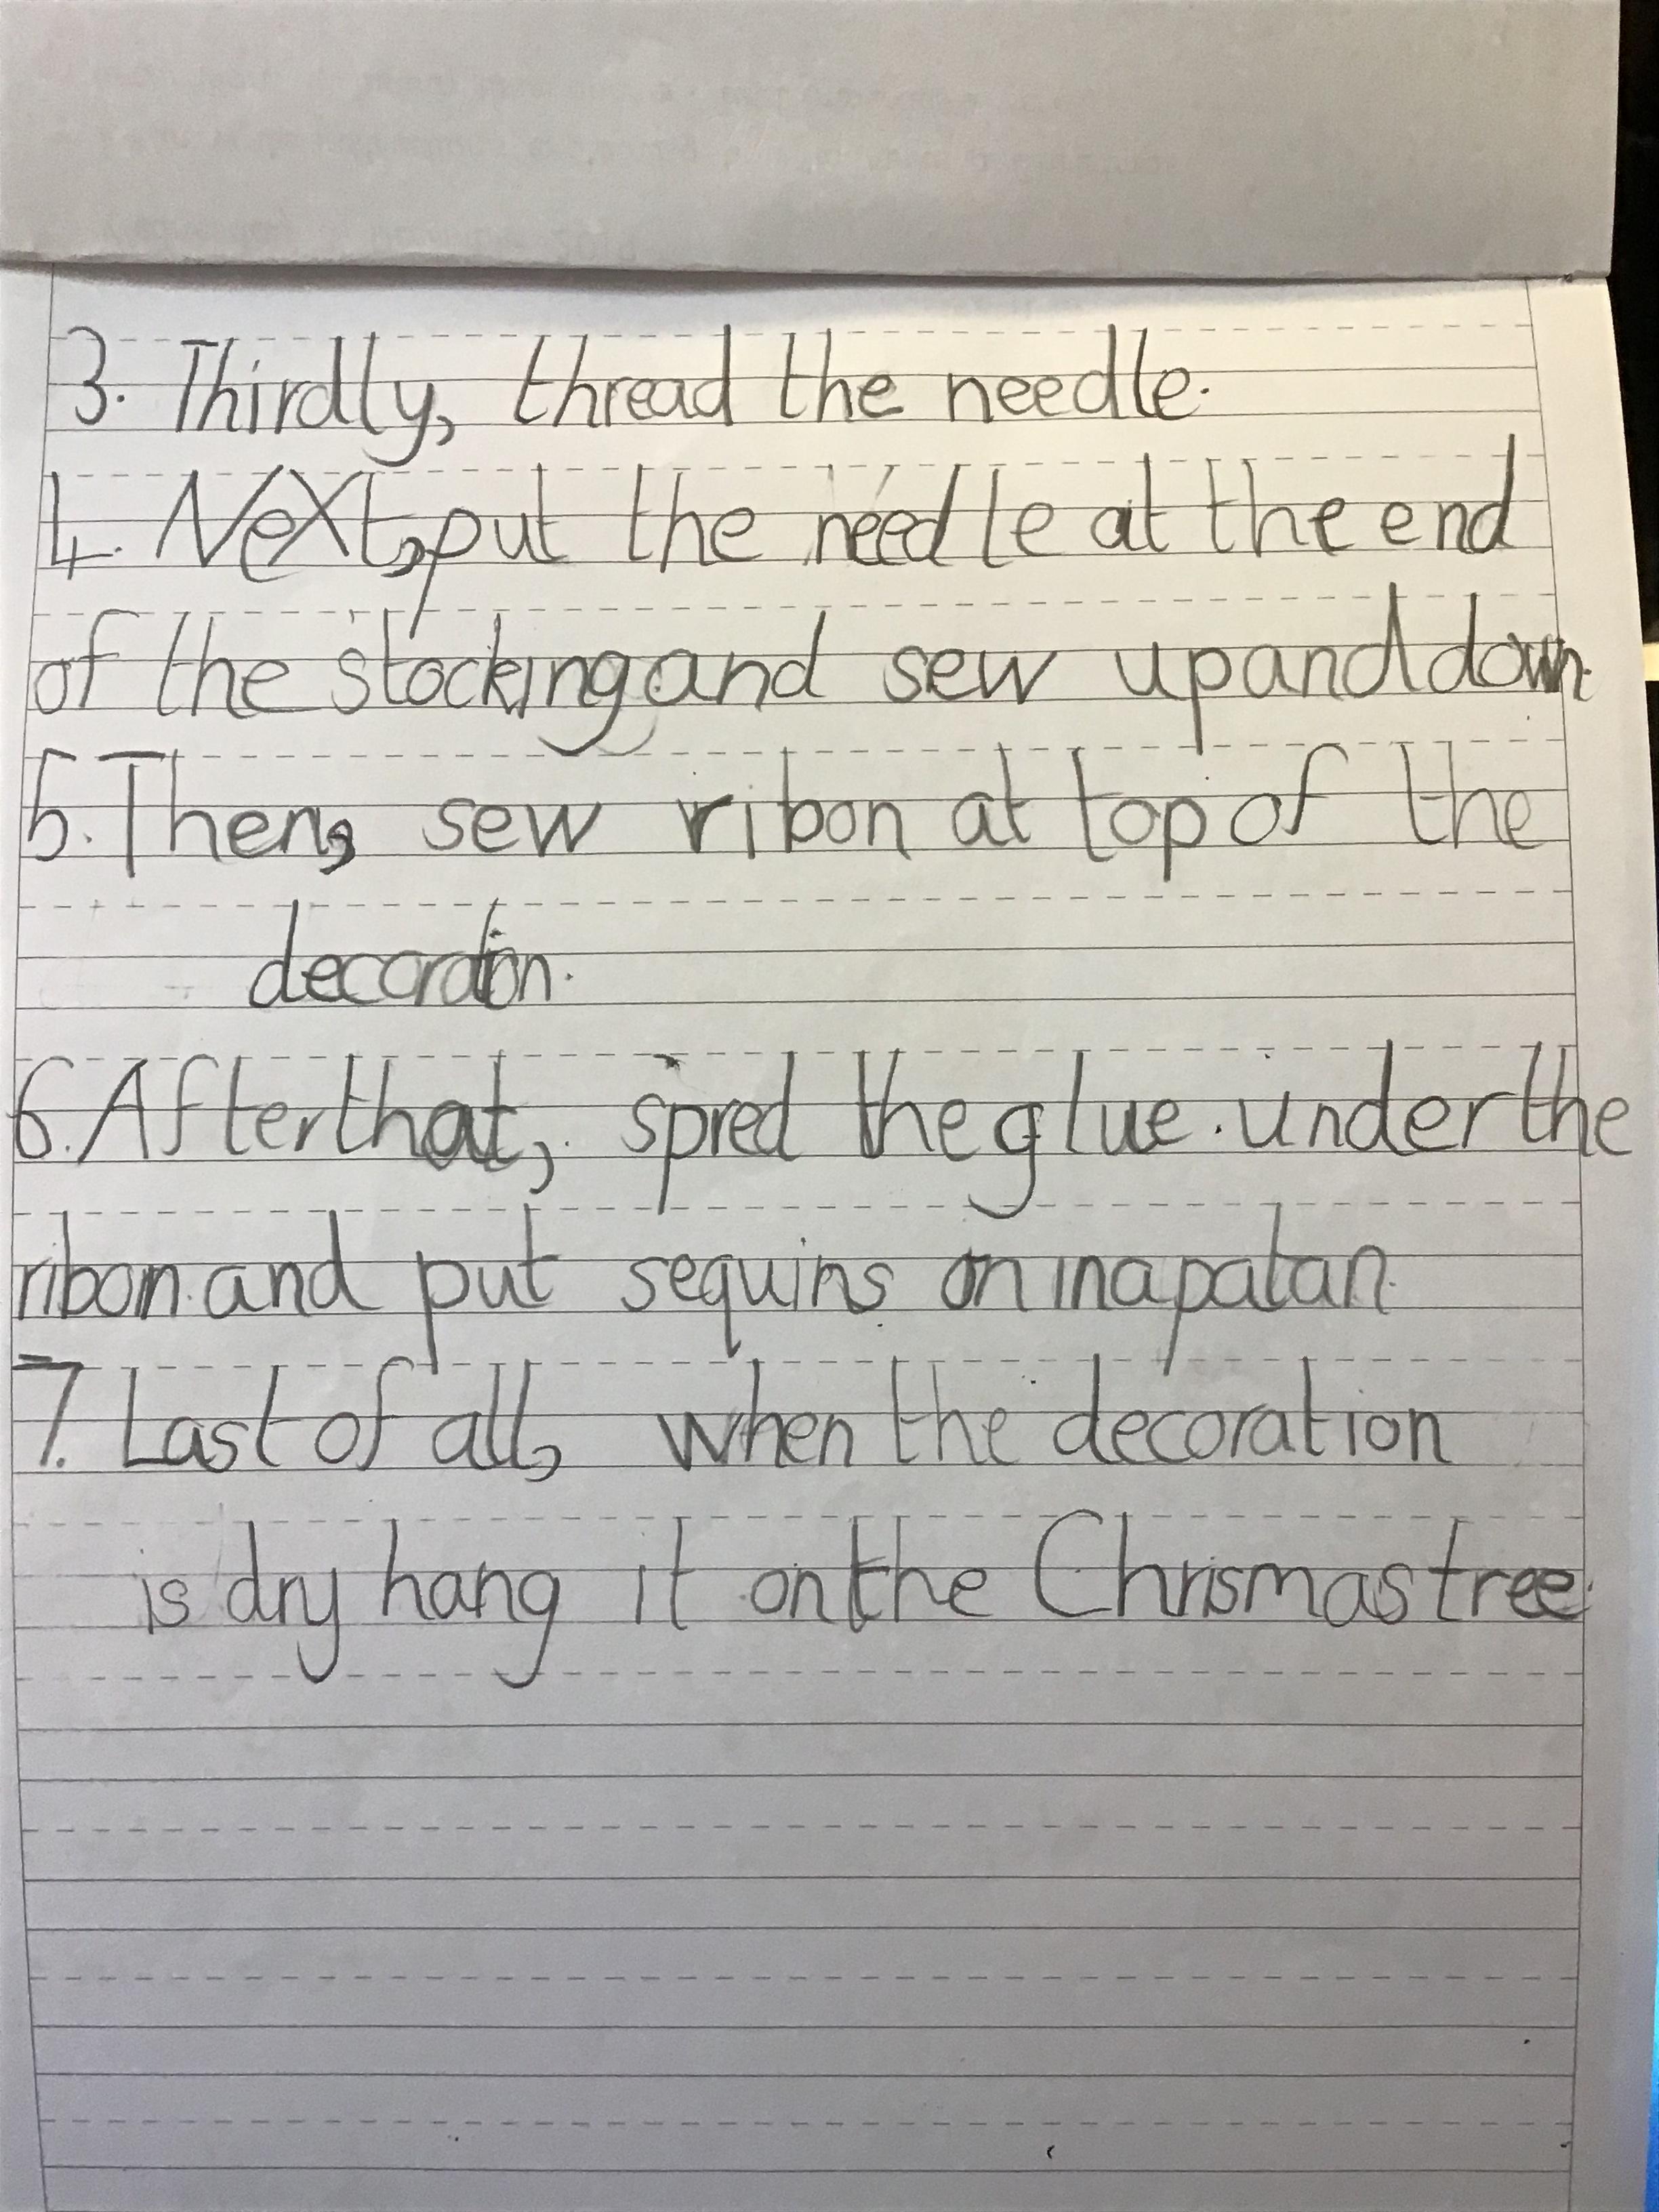 3. Thirdly, thread the needle.
4. Next, put the needle at the end
of the stocking and sew up and down.
5. Then, sew ribon at top of the
decoration.
6. After that, spred the glue. under the
ribon and put sequins on in a patan.
7. Last of all, when the decoration
is dry hang it on the Chrismas tree.